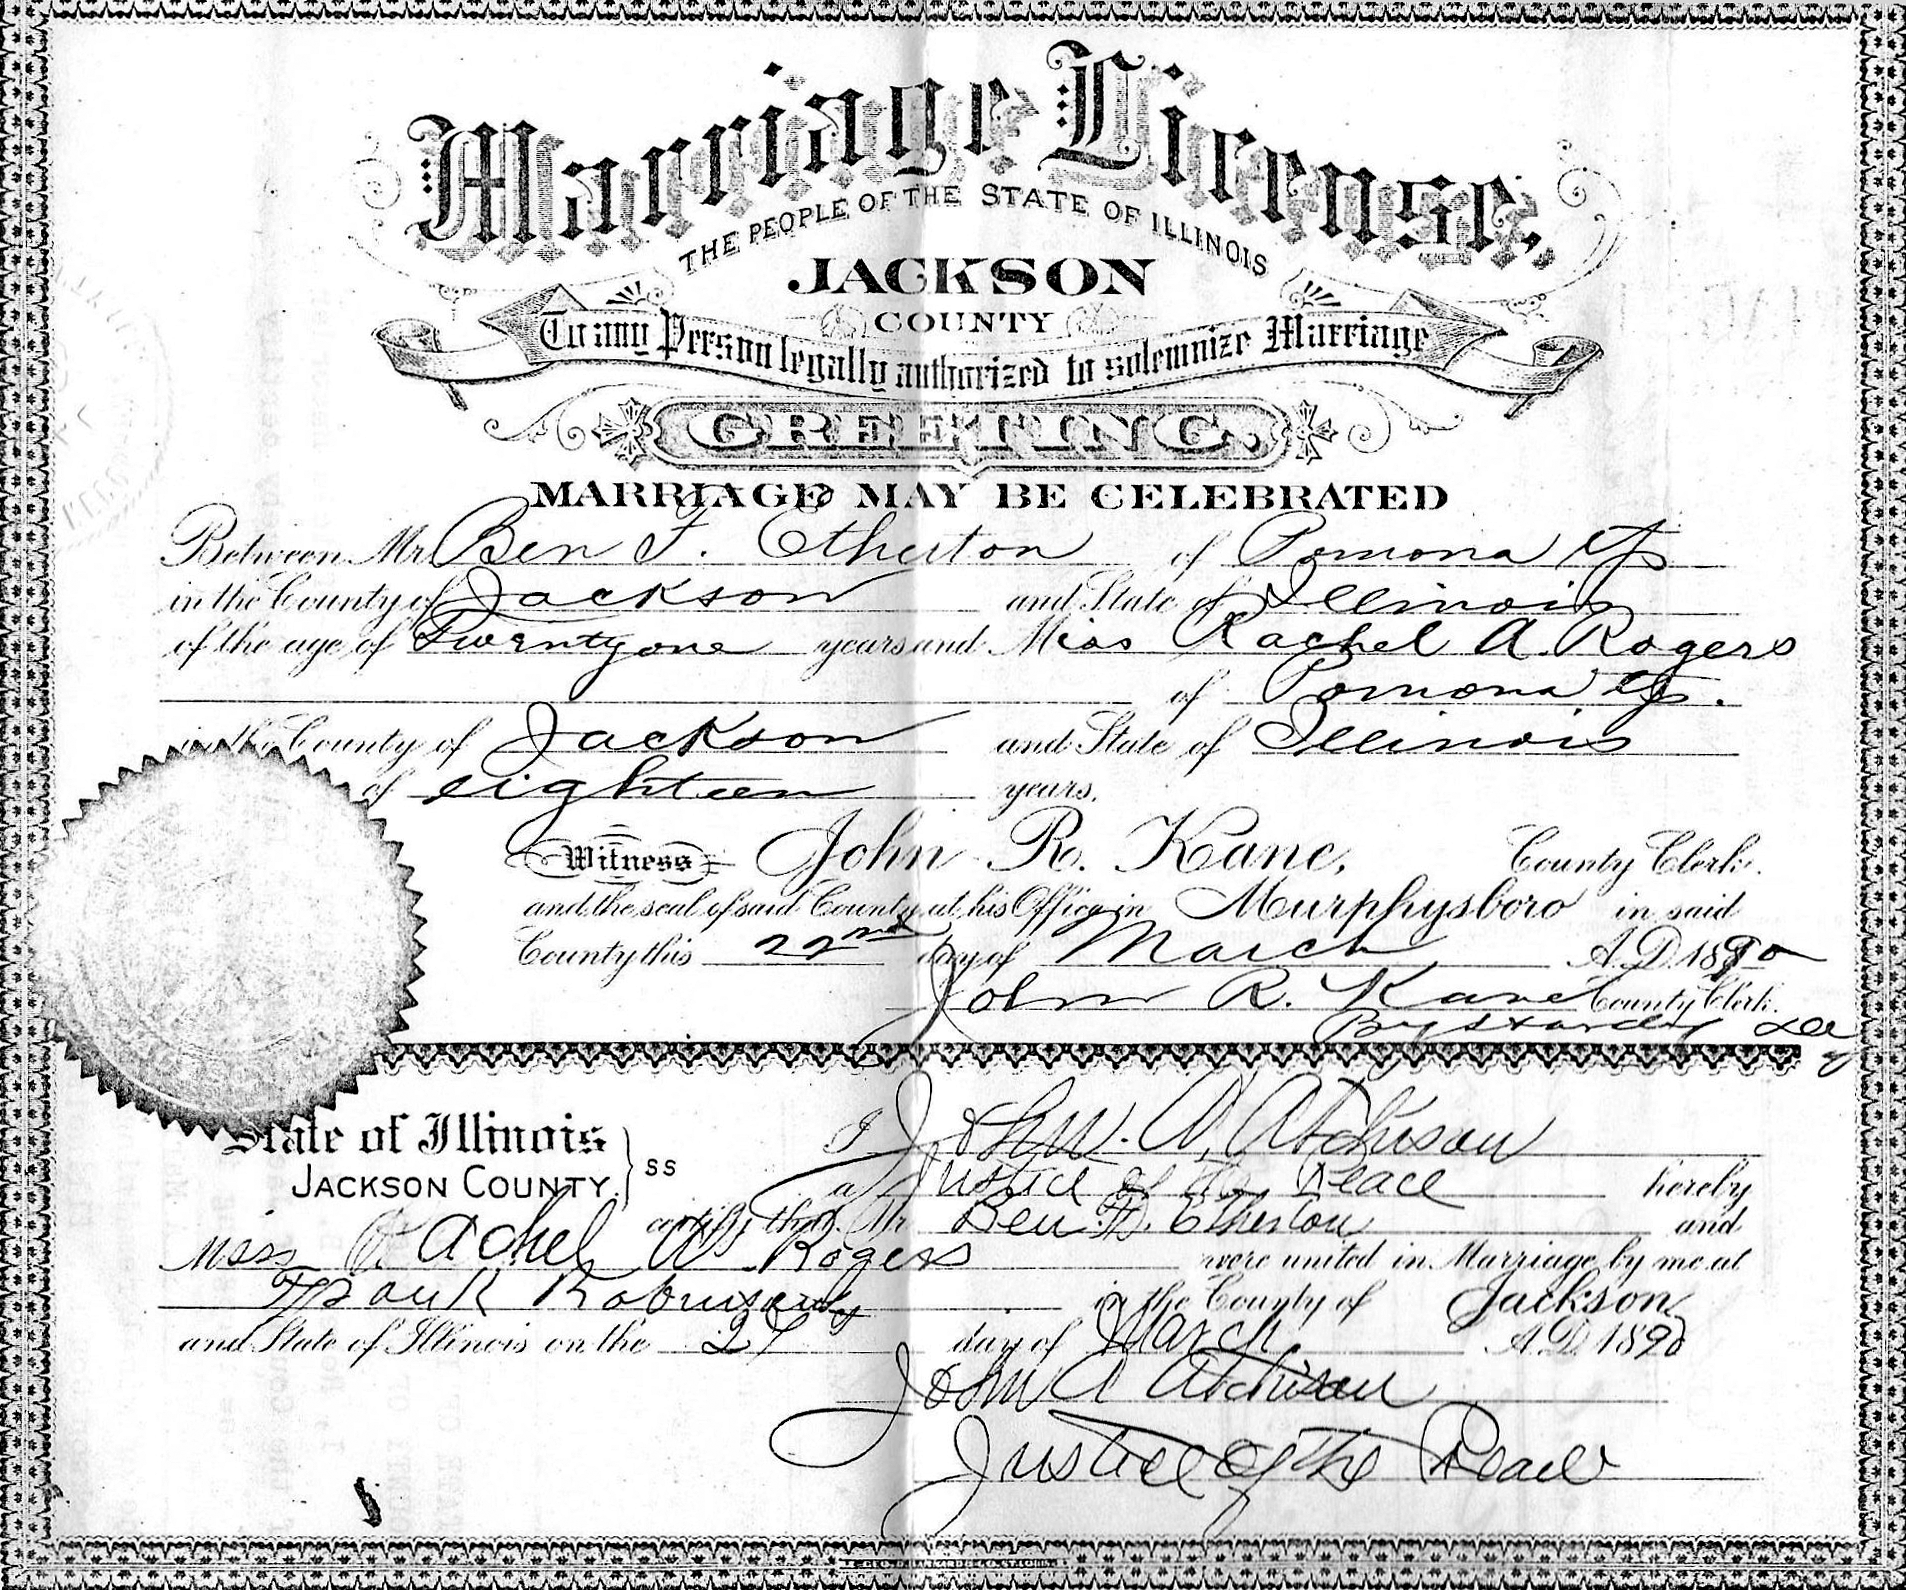 Marriage License,
THE PEOPLE OF THE STATE OF ILLINOIS
JACKSON
COUNTY
To any Person legally authorized to solemnize Marriage
GREETING.
MARRIAGE MAY BE CELEBRATED
Between Mr. Ben F. Etherton of Pomona Tp
in the County of Jackson and State of Illinois
of the age of Twenty one years and Miss Rachel A. Rogers
of Pomona Tp.
in the County of Jackson and State of Illinois
of eighteen years.
Witness John R. Kane, County Clerk.
and the seal of said County at his Office in Murphysboro in said
County this 22nd day of March A.D. 1890
John R. Kane County Clerk.
By
State of Illinois
JACKSON COUNTY } SS
I John. A. Atchison
a Justice of the Peace hereby
certify that Mr Ben F. Etherton and
Miss Rachel A. Rogers were united in Marriage by me at
Frank in the County of Jackson
and State of Illinois on the day of March A.D. 1890
John A Atchison
Justice of the Peace